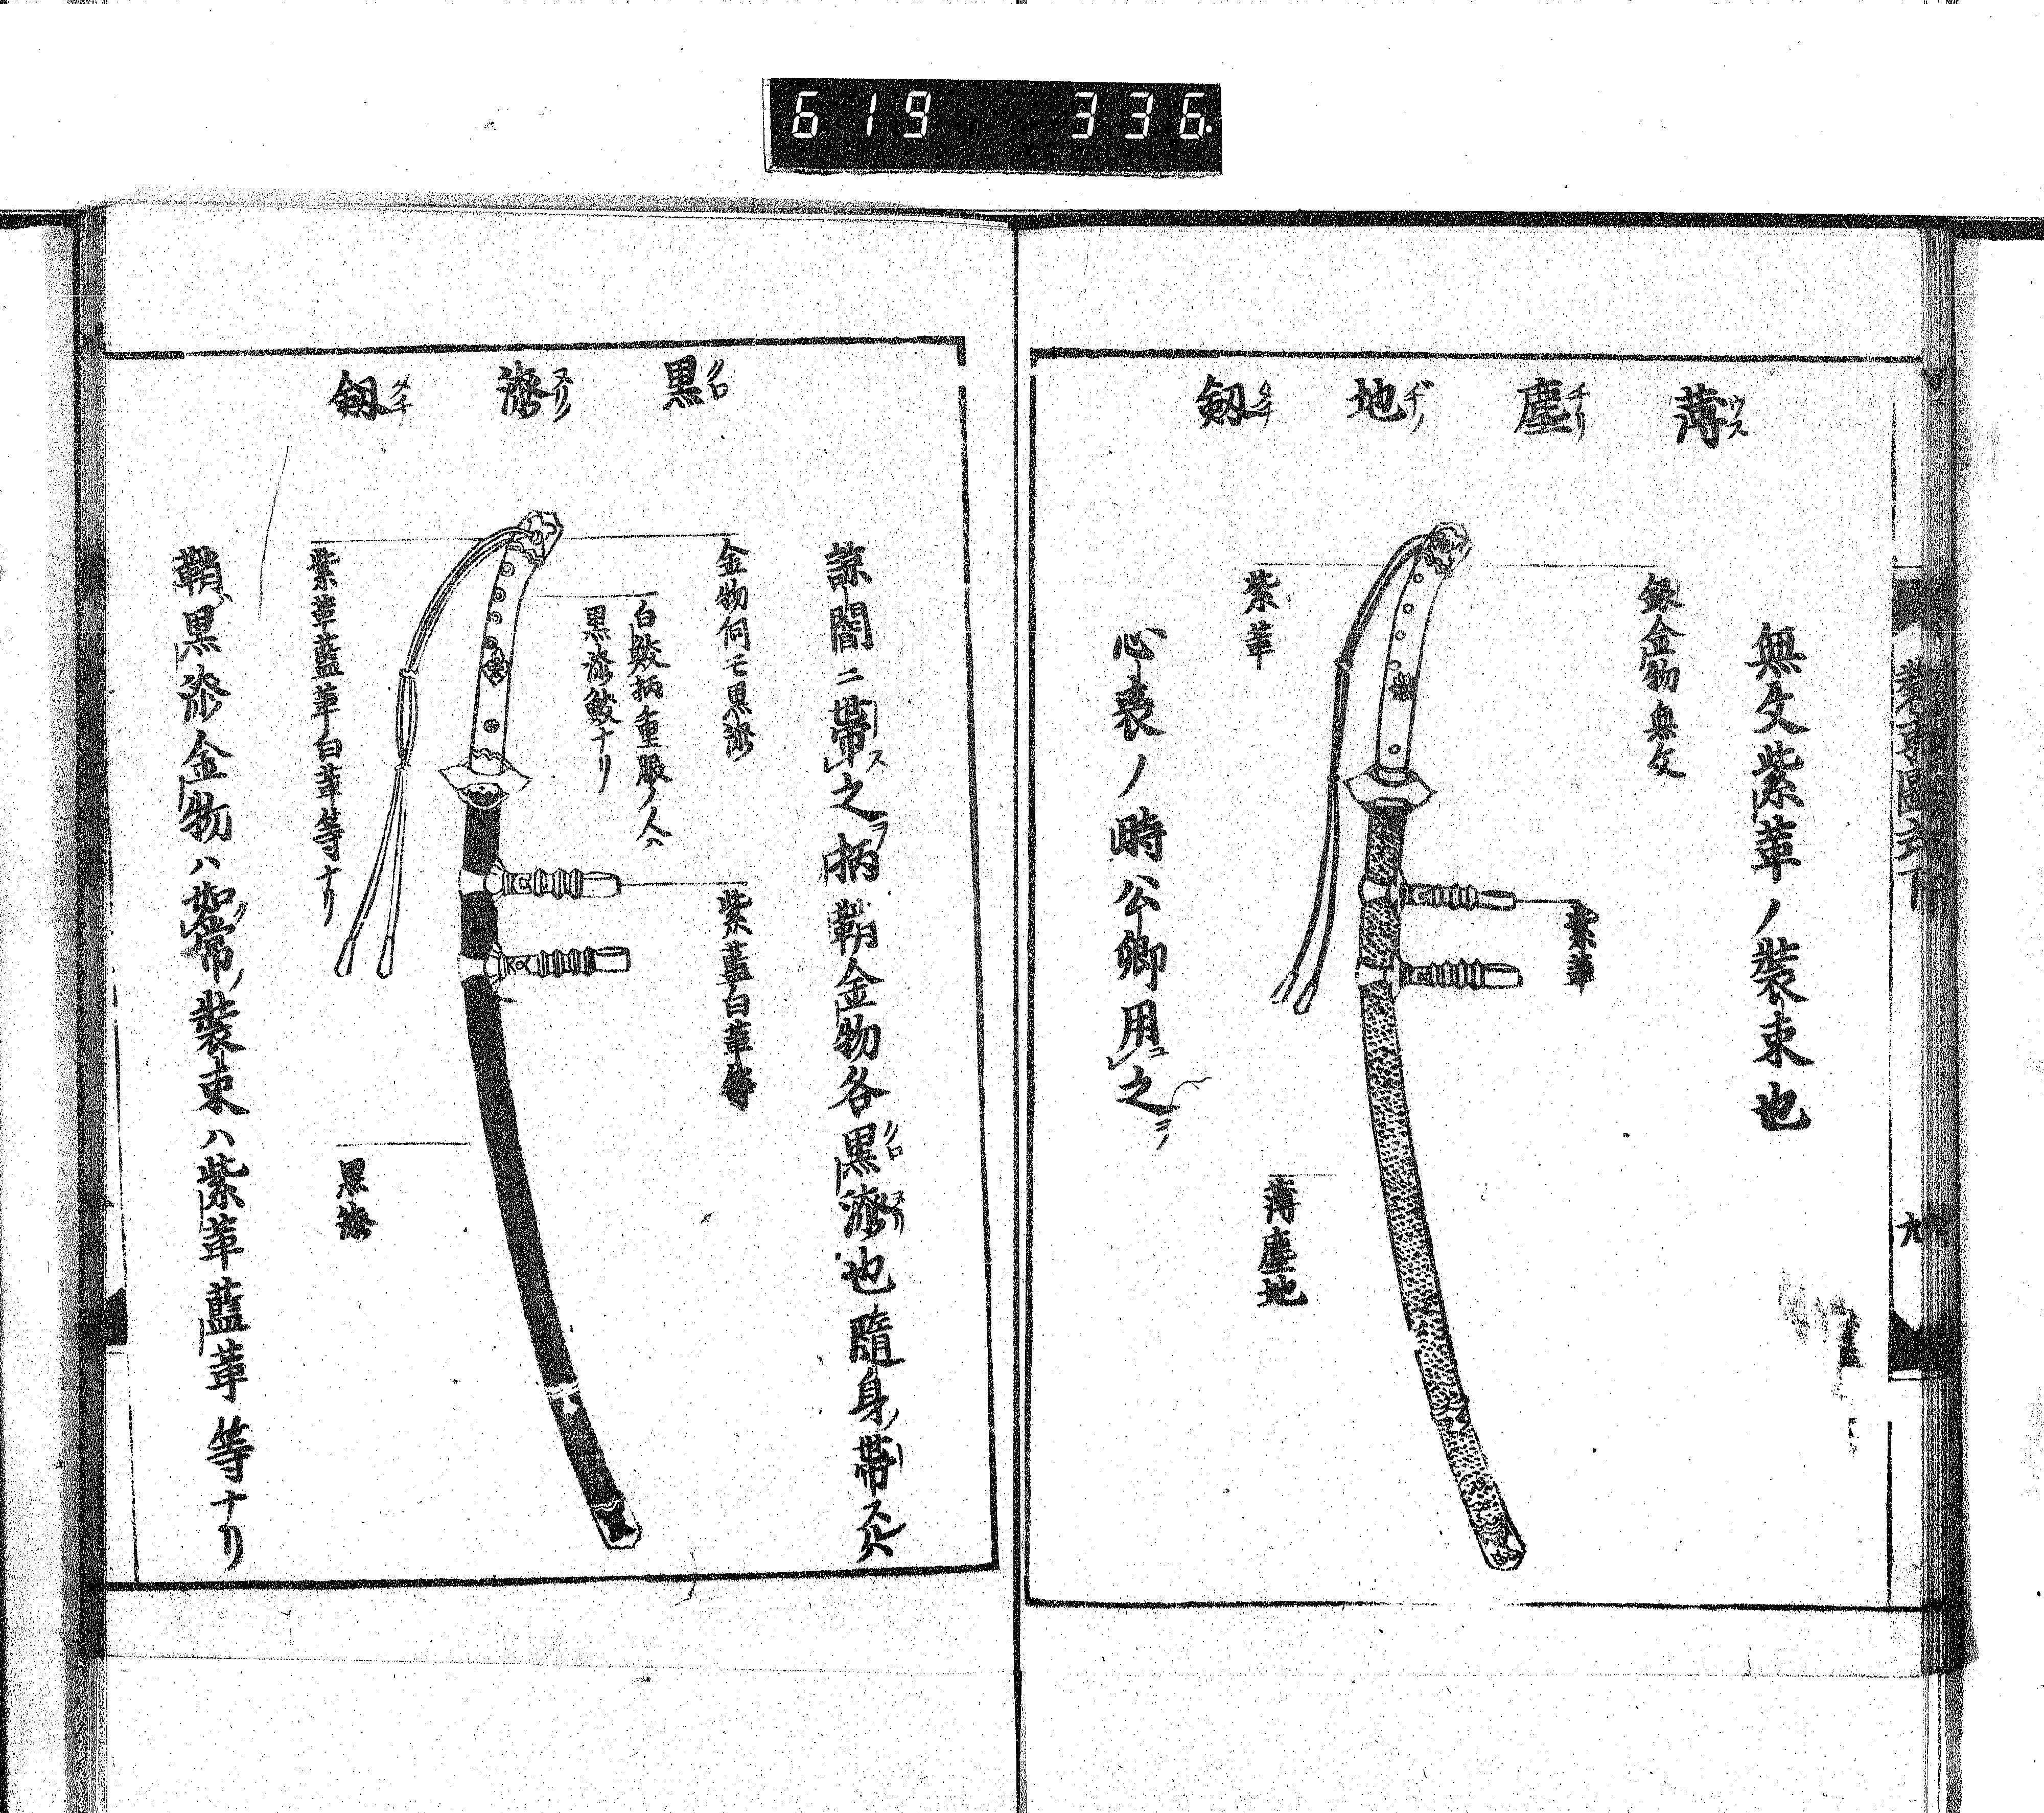 619 336
薄塵地劔
ウスチリヂノタチ
無文紫革ノ裝束也
銀金物無文
紫革
紫革
薄塵地
心喪ノ時公卿用之
黒漆劔
クロヌリノタチ
諒闇ニ帯之柄鞘金物各黒漆也隨身帯
金物何モ黒漆
白鮫柄重服ノ人ハ
黒漆鮫ナリ
紫藍白革等
紫革藍革白革等ナリ
黒漆
鞘黒漆金物ハ如常裝束ハ紫革藍革等ナリ